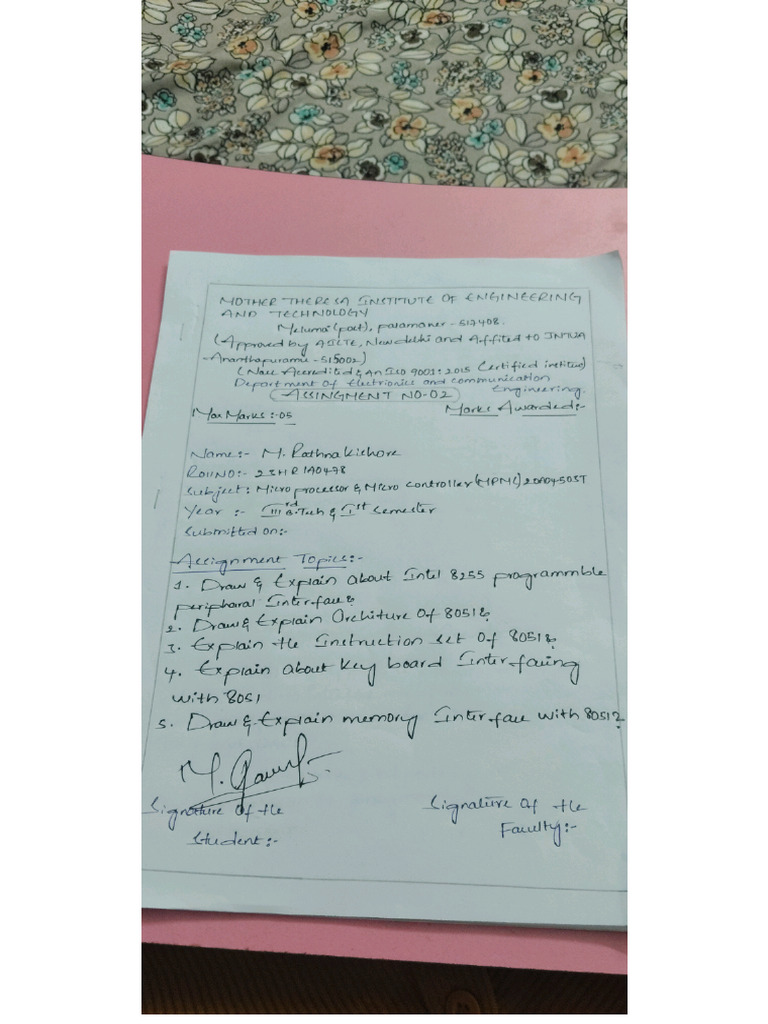 MOTHER THERESA INSTITUTE OF ENGINEERING
AND TECHNOLOGY
Melumai (post), palamaner - 517408.
(Approved by AICTE, New delhi and Affited to JNTUA
-Ananthapuramu - 515002)
(Nacc Accredited & An ISO 9001:2015 Certified institue)
Department of Electrionics and communication
Engineering.
(ASSINGMENT NO-02)
Max Marks :- 05 Marks Awarded:-
Name:- M. Rathna Kishore
Roll NO:- 23HR1A0478
Subject: Micro processor & Micro controller (MPMC) 20A04503T
Year :- IIIrd B.Tech & Ist semester
Submitted on:-
Assignment Topics:-
1. Draw & Explain about Intel 8255 programmble
peripharal Interface?
2. Draw & Explain Orchiture Of 8051?
3. Explain the Instruction set Of 8051?
4. Explain about Key board Interfacing
with 8051
5. Draw & Explain memory Interface with 8051?
Signature Of the Signature Of the
Student:- Faculty:-